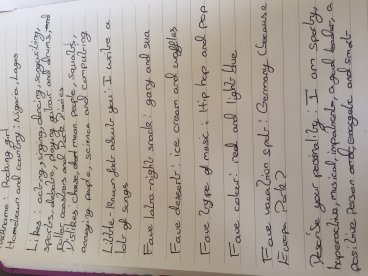 Nickname: Rocking girl
Hometown and country: Nigeria, Lagos
Likes: acting, singing, dancing, songwriting,
sports, debate, playing guitar and drums, and
roller coasters and Park Dimes
Dislikes: mean people, squats,
annoying people, science and computing
Little-known fact about you: I write a
lot of songs
Fave late-night snack: gary and sua
Fave dessert: ice cream and waffles
Fave type of music: Hip hop and pop
Fave color: red and light blue
Fave vacation spot: Germany (because
Europa Park)
Describe your personality: I am sporty,
musical, a good leader, a
positive person and energetic and smart